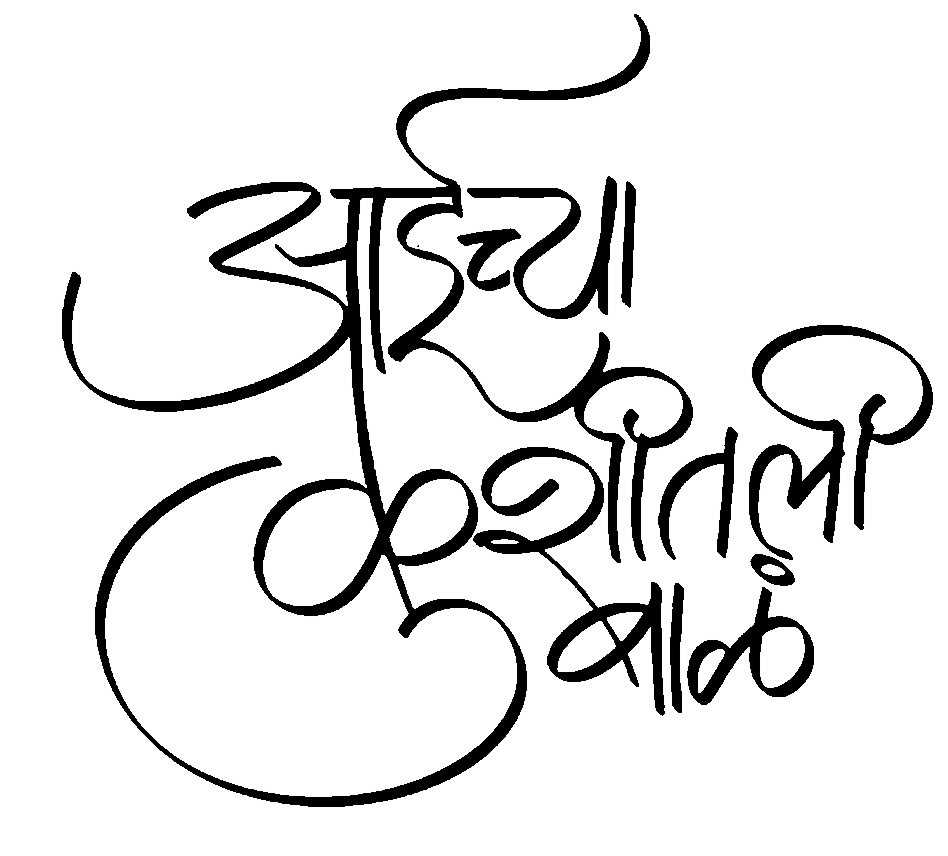 आईच्या
कुशीतली
बाळं